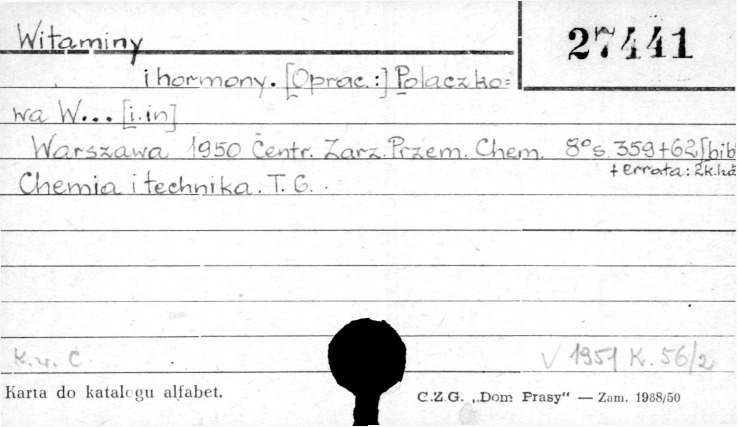 Witaminy
27441
i hormony. [Oprac.:] Polaczko=
wa W... [i.in]
Warszawa 1950 Centr. Zarz. Przem. Chem. 8° s. 359+62 [bib
+ errata: 2k.
Chemia i technika. T. 6.
√ 1951 K. 56/2
Karta do katalogu alfabet.
C.Z.G. „Dom Prasy" — Zam. 1988/50